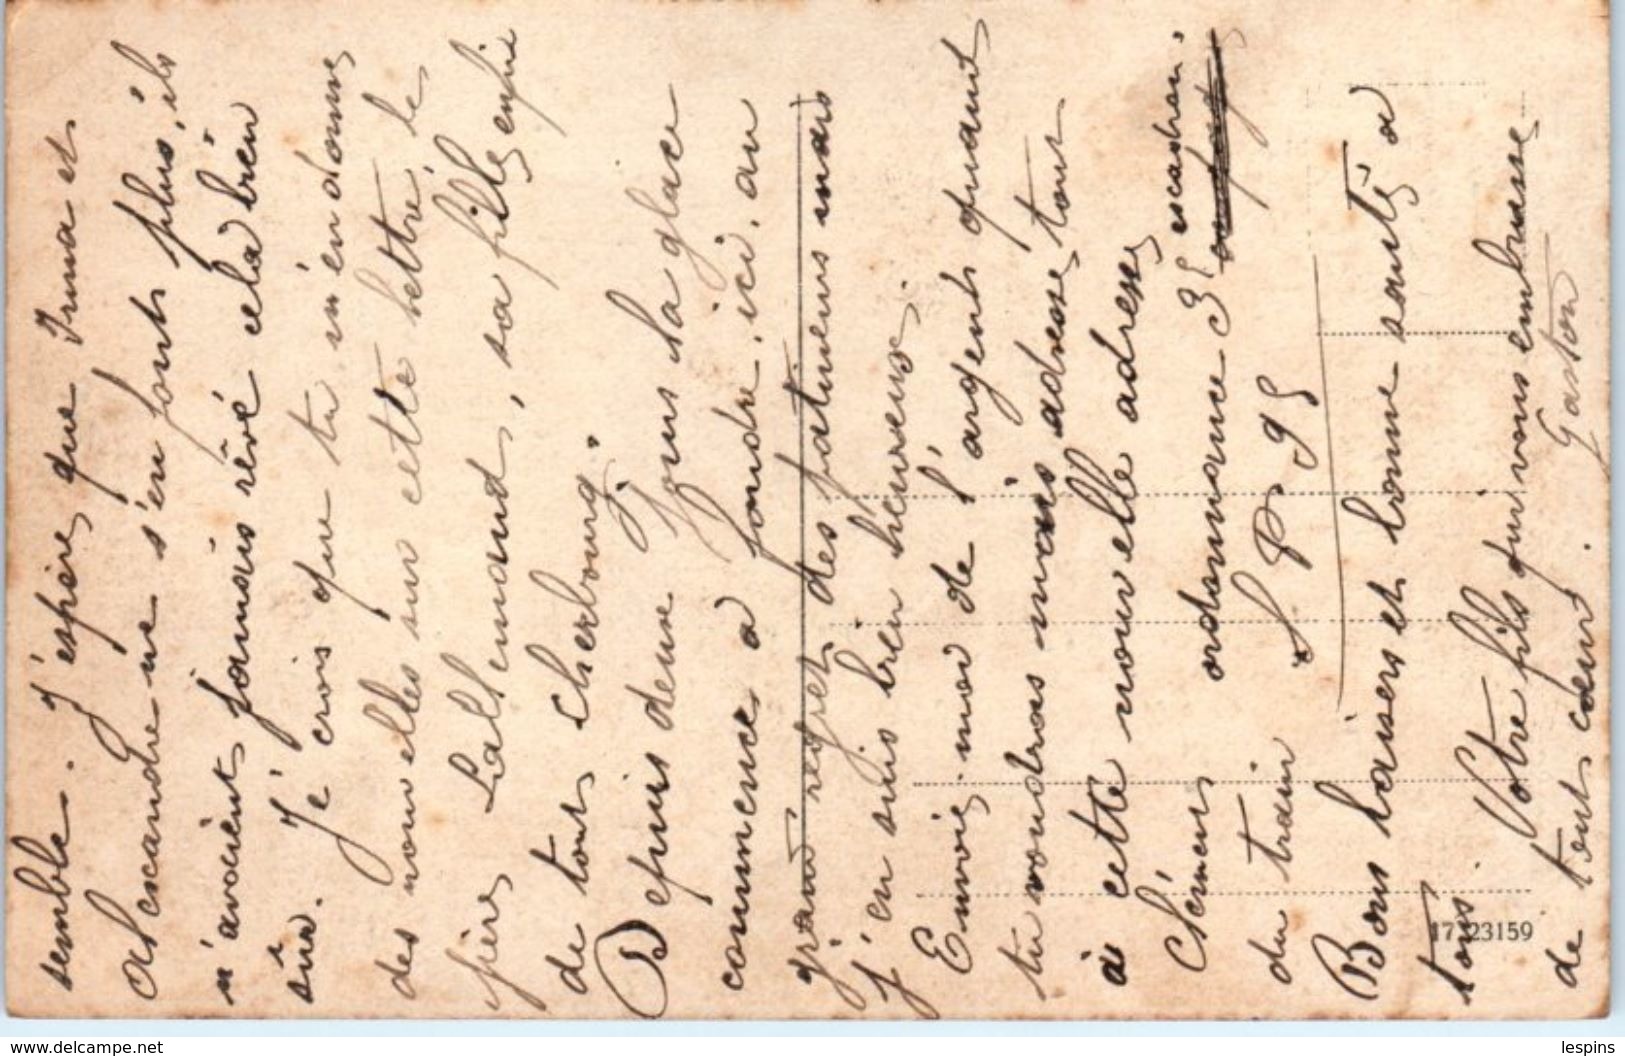 semble. J'espère que Irma et
Alexcandre ne s'en font plus, ils
n'avaient jamais rêvé cela bien
sûr.
Je crois que tu m'en donnes
des nouvelles sur cette lettre, le
père Lallemand, sa fille, enfin
de tout Cherbourg.
Depuis deux jours la glace
commence a fondre, ici, au
grand regret des patineurs mais
j'en suis bien heureux.
Envoie-moi de l'argent quant
tu voudras mais adresse tout
à cette nouvelle adresse
Chémery ordonnance 35 escadron.
du train S P 95
Bons baisers et bonne santé a
tous. Votre fils qui vous embrasse
de tout cœur. Gaston
17123159
www.delcampe.net
lespins